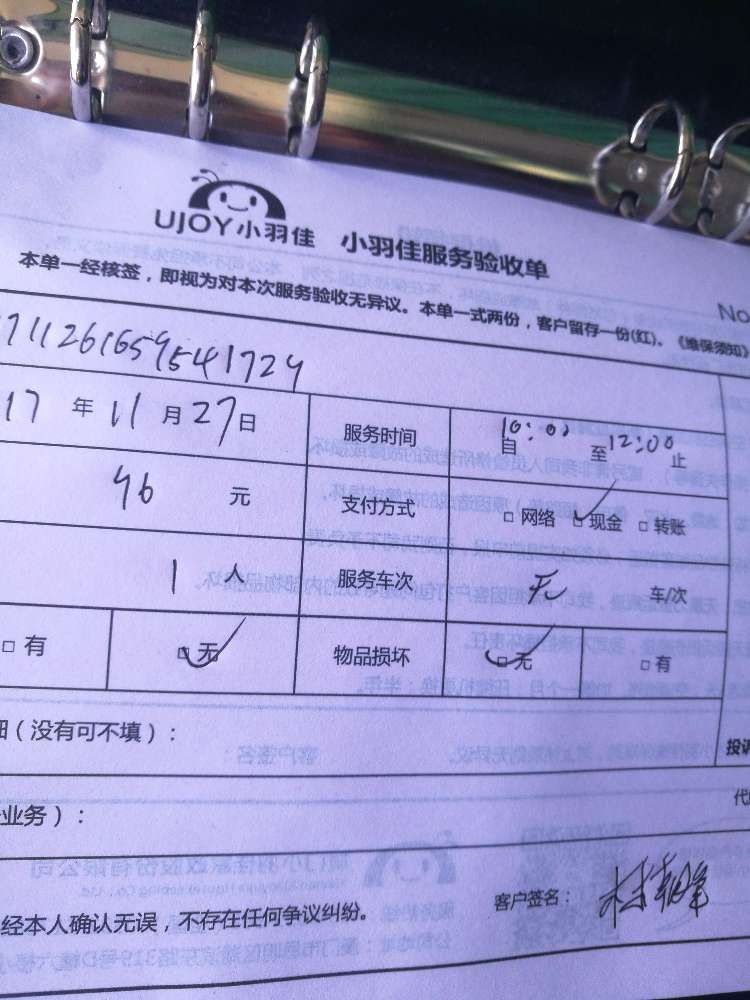 UJOY小羽佳 小羽佳服务验收单
本单一经核签，即视为对本次服务验收无异议。本单一式两份，客户留存一份(红)。《维保须知》
No
711261659541724
17 年 11 月 27 日 服务时间 自 10:00 至 12:00 止
96 元 支付方式 □ 网络 □ 现金 □ 转账
1 人 服务车次 无 车/次
□ 有 □ 无 物品损坏 □ 无 □ 有
（没有可不填）：
投诉
业务）：
代
经本人确认无误，不存在任何争议纠纷。
客户签名：